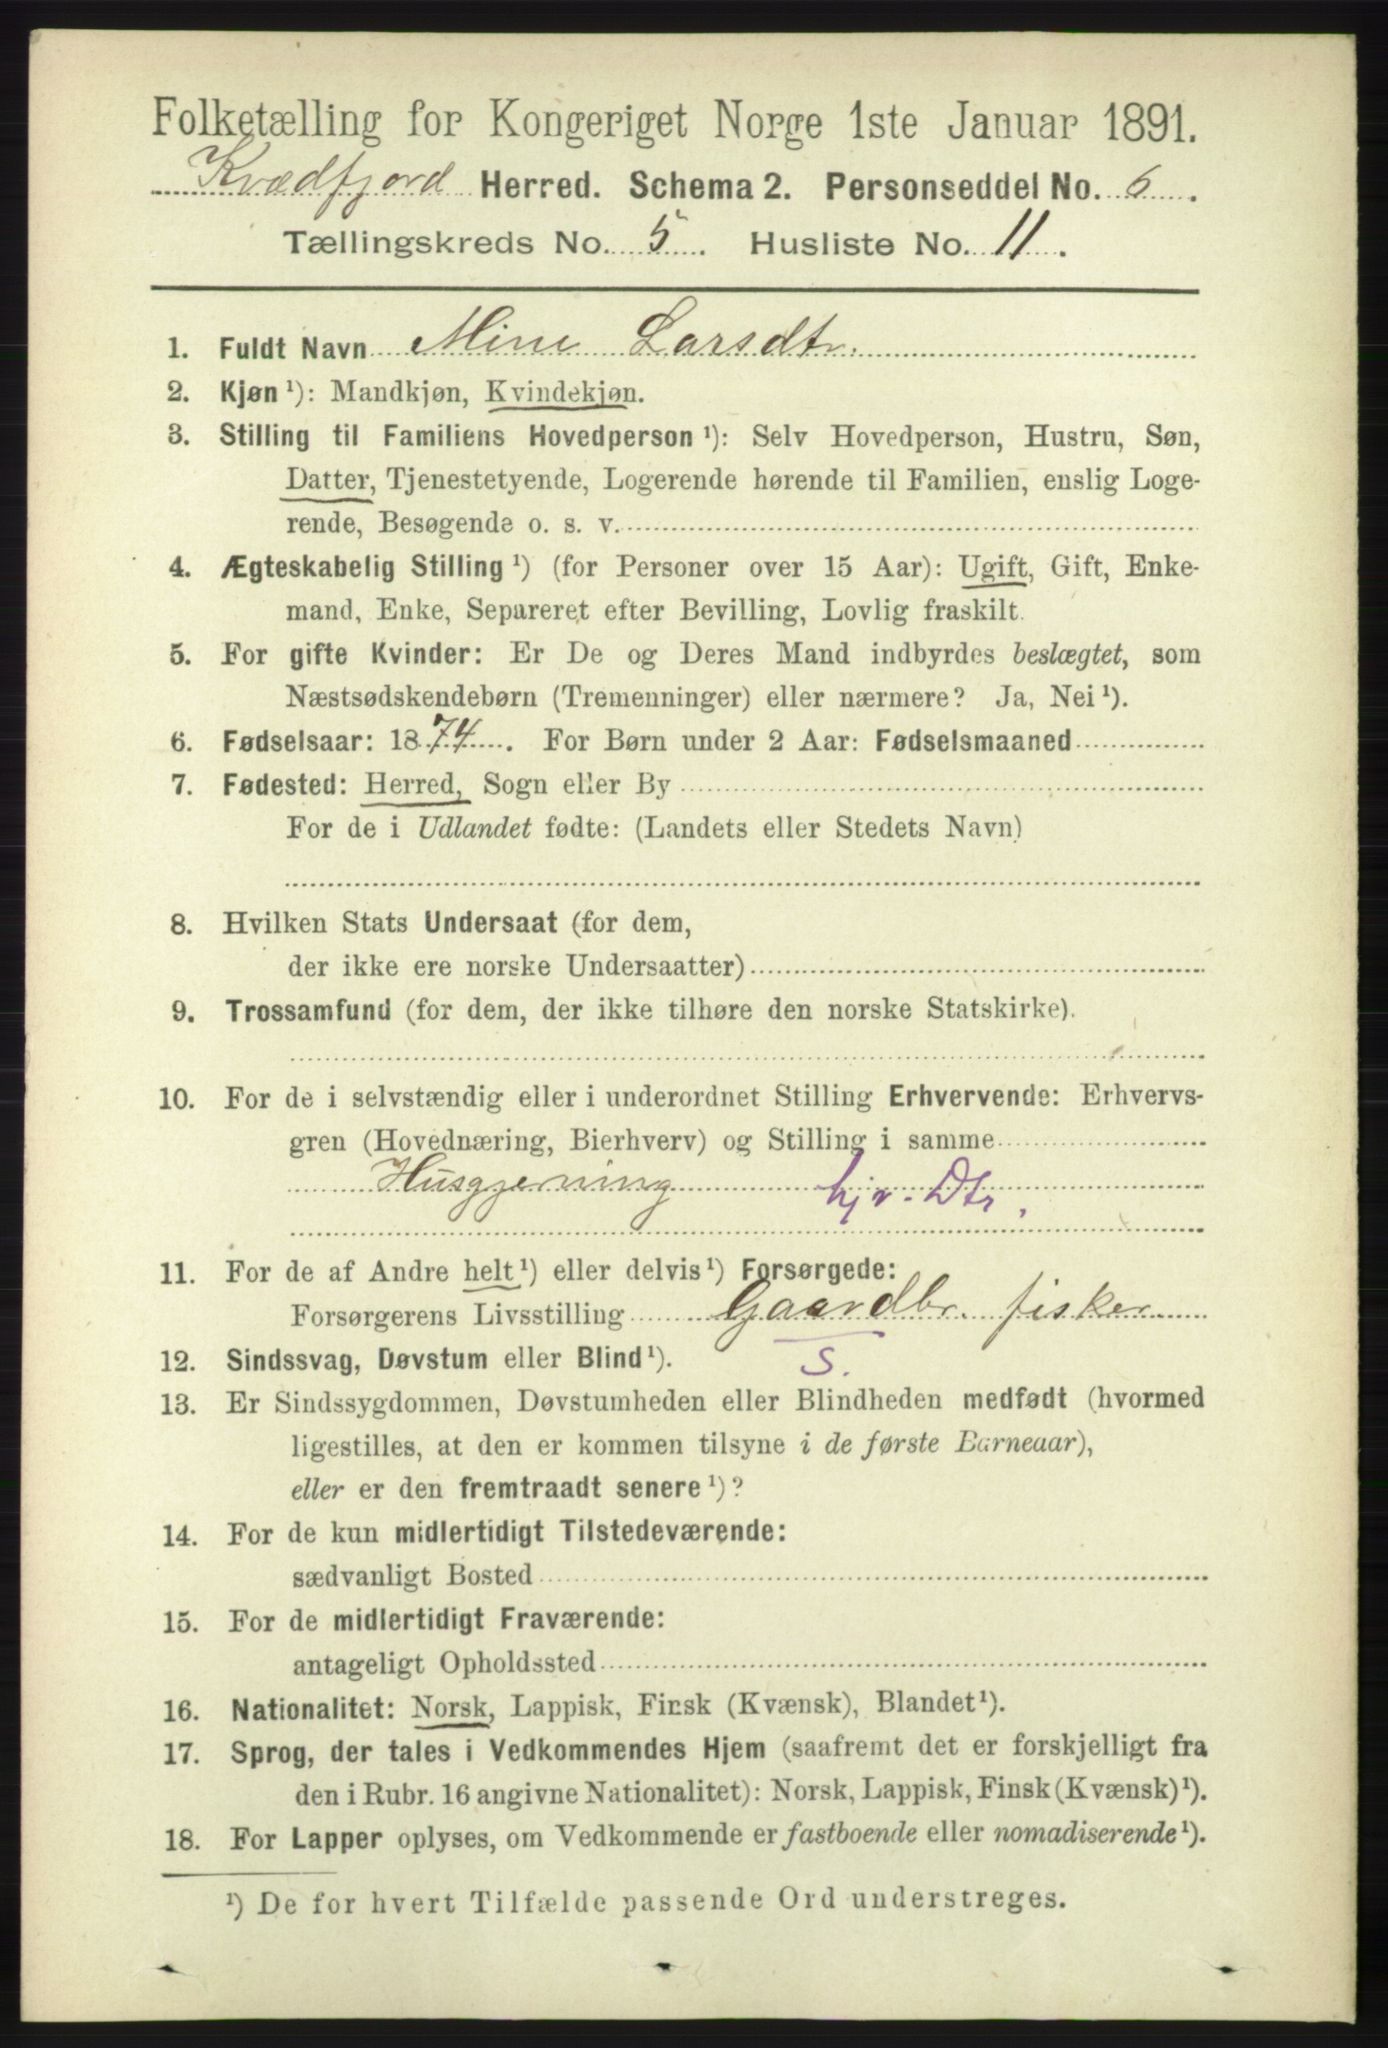 Folketælling for Kongeriget Norge 1ste Januar 1891.
Kvædfjord Herred. Schema 2. Personseddel No. 6.
Tællingskreds No. 5. Husliste No. 11.
1. Fuldt Navn Mine Larsdtr.
2. Kjøn ¹): Mandkjøn, Kvindekjøn.
3. Stilling til Familiens Hovedperson ¹): Selv Hovedperson, Hustru, Søn,
Datter, Tjenestetyende, Logerende hørende til Familien, enslig Loge-
rende, Besøgende o. s. v.
4. Ægteskabelig Stilling ¹) (for Personer over 15 Aar): Ugift, Gift, Enke-
mand, Enke, Separeret efter Bevilling, Lovlig fraskilt.
5. For gifte Kvinder: Er De og Deres Mand indbyrdes beslægtet, som
Næstsødskendebørn (Tremenninger) eller nærmere? Ja, Nei ¹).
6. Fødselsaar: 1874. For Børn under 2 Aar: Fødselsmaaned
7. Fødested: Herred, Sogn eller By
For de i Udlandet fødte: (Landets eller Stedets Navn)
8. Hvilken Stats Undersaat (for dem,
der ikke ere norske Undersaatter)
9. Trossamfund (for dem, der ikke tilhøre den norske Statskirke).
10. For de i selvstændig eller i underordnet Stilling Erhvervende: Erhvervs-
gren (Hovednæring, Bierhverv) og Stilling i samme
Husgjerning hjv. Dtr.
11. For de af Andre helt ¹) eller delvis ¹) Forsørgede:
Forsørgerens Livsstilling Gaardbr. fisker
12. Sindssvag, Døvstum eller Blind ¹). S.
13. Er Sindssygdommen, Døvstumheden eller Blindheden medfødt (hvormed
ligestilles, at den er kommen tilsyne i de første Barneaar),
eller er den fremtraadt senere ¹)?
14. For de kun midlertidigt Tilstedeværende:
sædvanligt Bosted
15. For de midlertidigt Fraværende:
antageligt Opholdssted
16. Nationalitet: Norsk, Lappisk, Finsk (Kvænsk), Blandet ¹).
17. Sprog, der tales i Vedkommendes Hjem (saafremt det er forskjelligt fra
den i Rubr. 16 angivne Nationalitet): Norsk, Lappisk, Finsk (Kvænsk) ¹).
18. For Lapper oplyses, om Vedkommende er fastboende eller nomadiserende ¹).
¹) De for hvert Tilfælde passende Ord understreges.